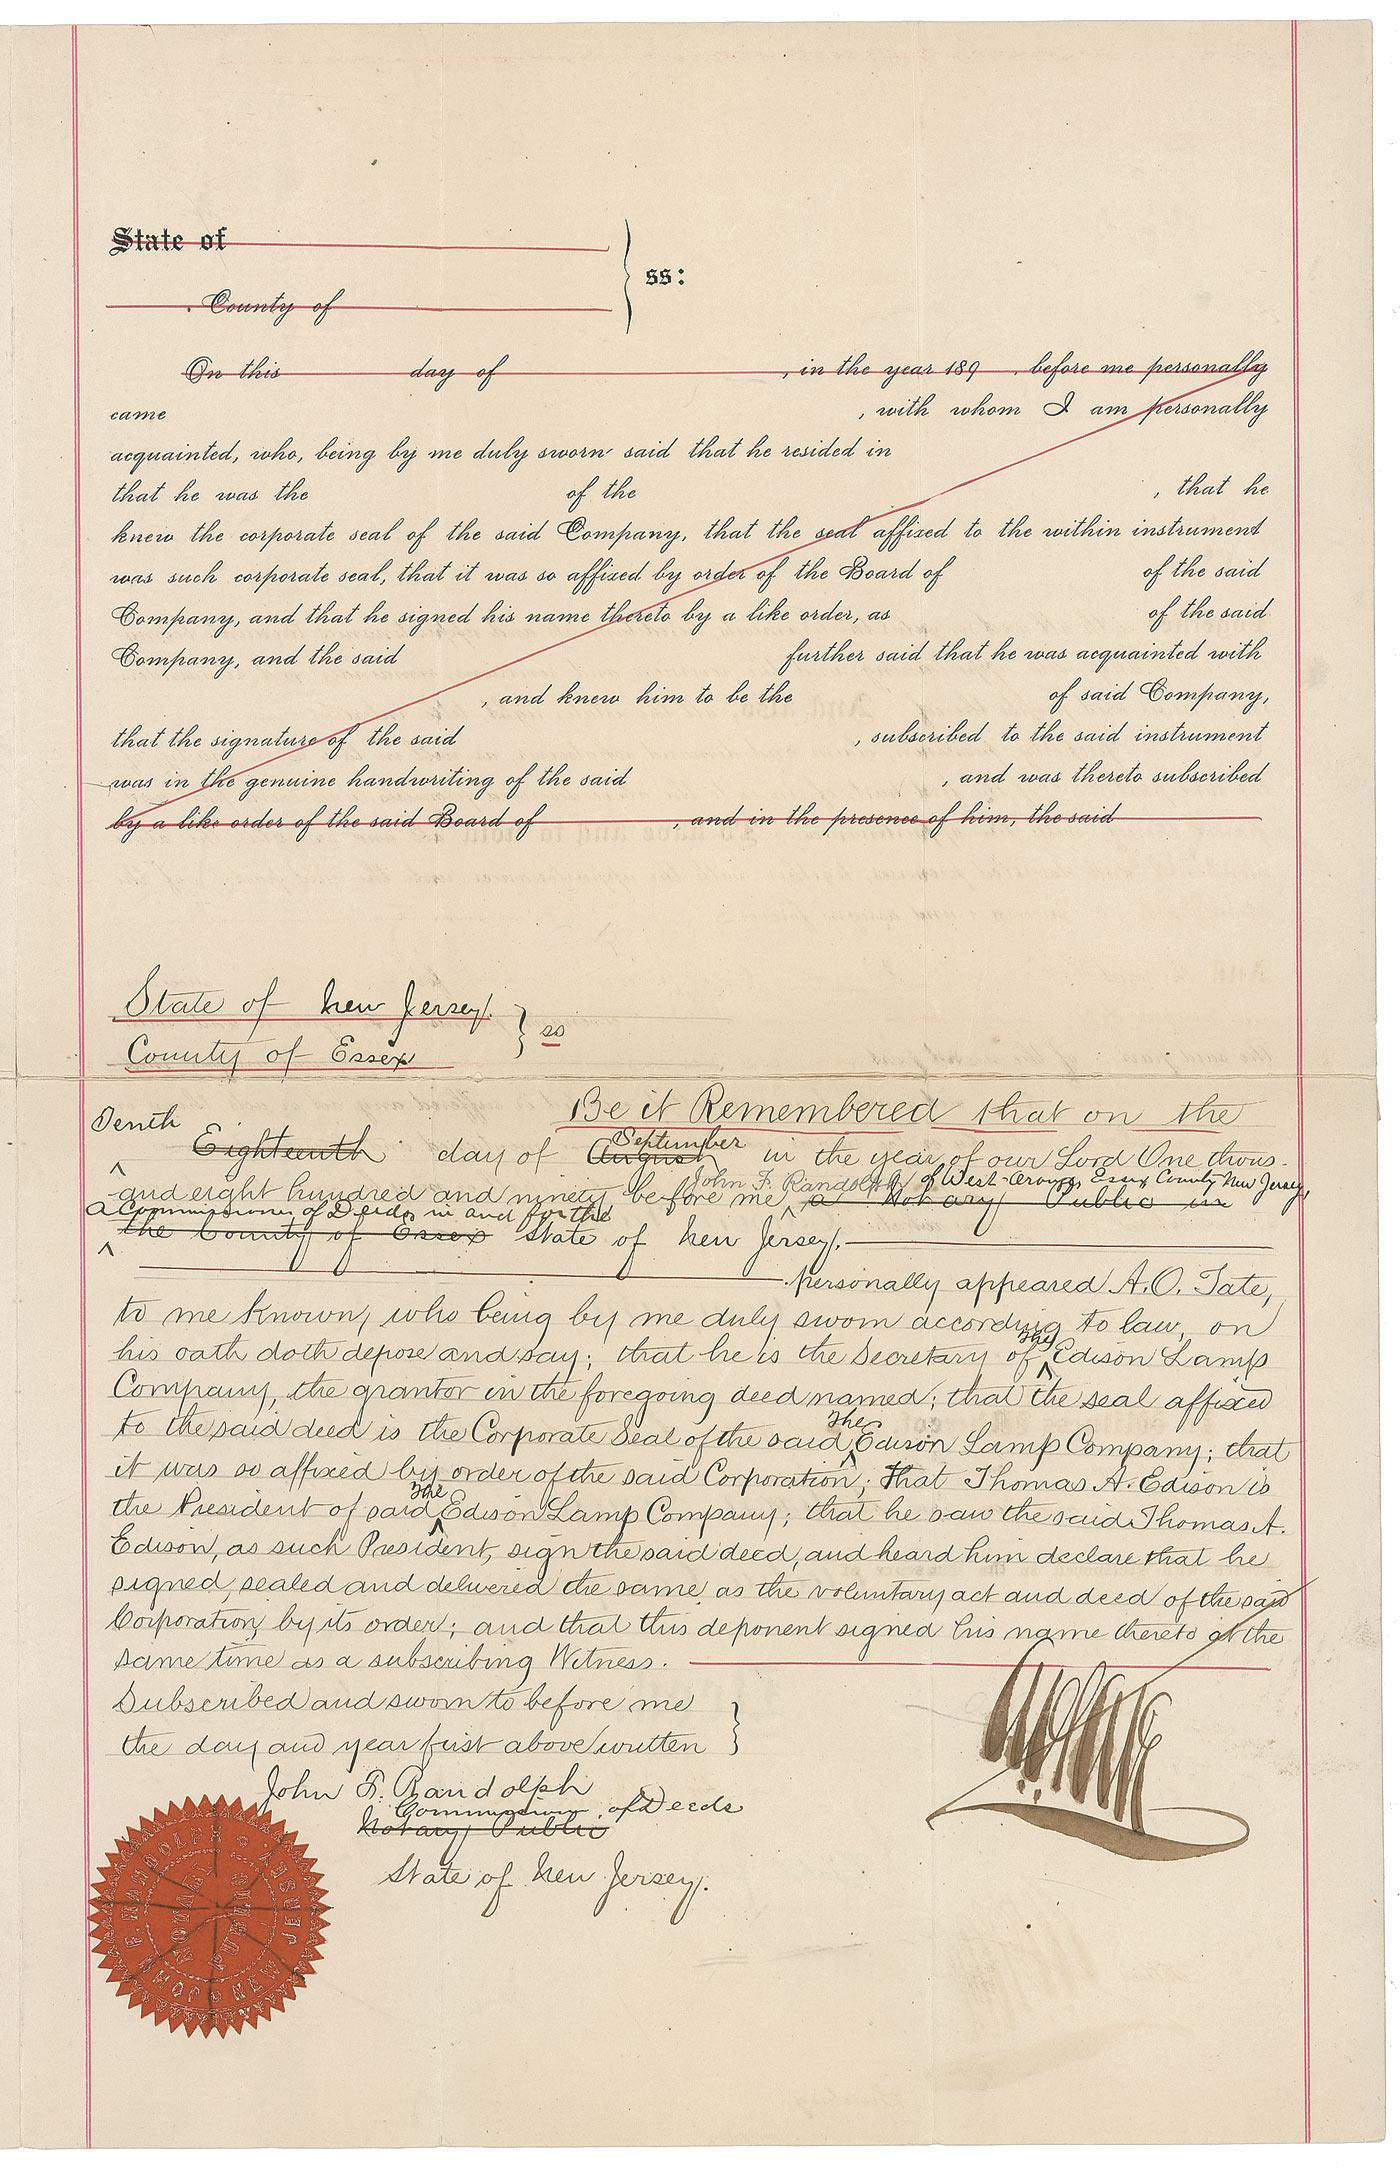 State of
ss:
County of
On this day of , in the year 189 , before me personally
came , with whom I am personally
acquainted, who, being by me duly sworn said that he resided in
that he was the of the , that he
knew the corporate seal of the said Company, that the seal affixed to the within instrument
was such corporate seal, that it was so affixed by order of the Board of of the said
Company, and that he signed his name thereto by a like order, as of the said
Company, and the said further said that he was acquainted with
, and knew him to be the of said Company,
that the signature of the said , subscribed to the said instrument
was in the genuine handwriting of the said , and was thereto subscribed
by a like order of the said Board of , and in the presence of him, the said
State of New Jersey.
ss
County of Essex
Be it Remembered that on the
Tenth
September
Eighteenth day of August in the year of our Lord One thous-
John F. Randolph of West Orange, Essex County New Jersey,
and eight hundred and ninety before me a Notary Public in
a Commissioner of Deeds in and for the
the County of Essex State of New Jersey.
personally appeared A. O. Tate,
to me known, who being by me duly sworn according to law, on
the
his oath doth depose and say; that he is the Secretary of Edison Lamp
Company, the grantor in the foregoing deed named; that the seal affixed
The
to the said deed is the Corporate Seal of the said Edison Lamp Company; that
it was so affixed by order of the said Corporation; that Thomas A. Edison is
The
the President of said Edison Lamp Company; that he saw the said Thomas A.
Edison, as such President, sign the said deed, and heard him declare that he
signed, sealed and delivered the same as the voluntary act and deed of the said
Corporation by its order; and that this deponent signed his name thereto at the
same time as a subscribing Witness.
Subscribed and sworn to before me
the day and year first above written
John F. Randolph
Commissioner of Deeds
Notary Public
State of New Jersey.
JOHN F. RANDOLPH
NEW JERSEY
NOTARY PUBLIC